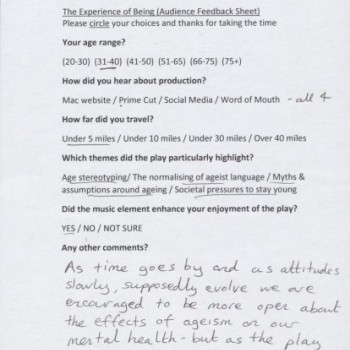 The Experience of Being (Audience Feedback Sheet)
Please circle your choices and thanks for taking the time
Your age range?
(20-30) (31-40) (41-50) (51-65) (66-75) (75+)
How did you hear about production?
Mac website / Prime Cut / Social Media / Word of Mouth - all 4
How far did you travel?
Under 5 miles / Under 10 miles / Under 30 miles / Over 40 miles
Which themes did the play particularly highlight?
Age stereotyping/ The normalising of ageist language / Myths &
assumptions around ageing / Societal pressures to stay young
Did the music element enhance your enjoyment of the play?
YES / NO / NOT SURE
Any other comments?
As time goes by and as attitudes
slowly, supposedly evolve we are
encouraged to be more open about
the effects of ageism on our
mental health - but as the play